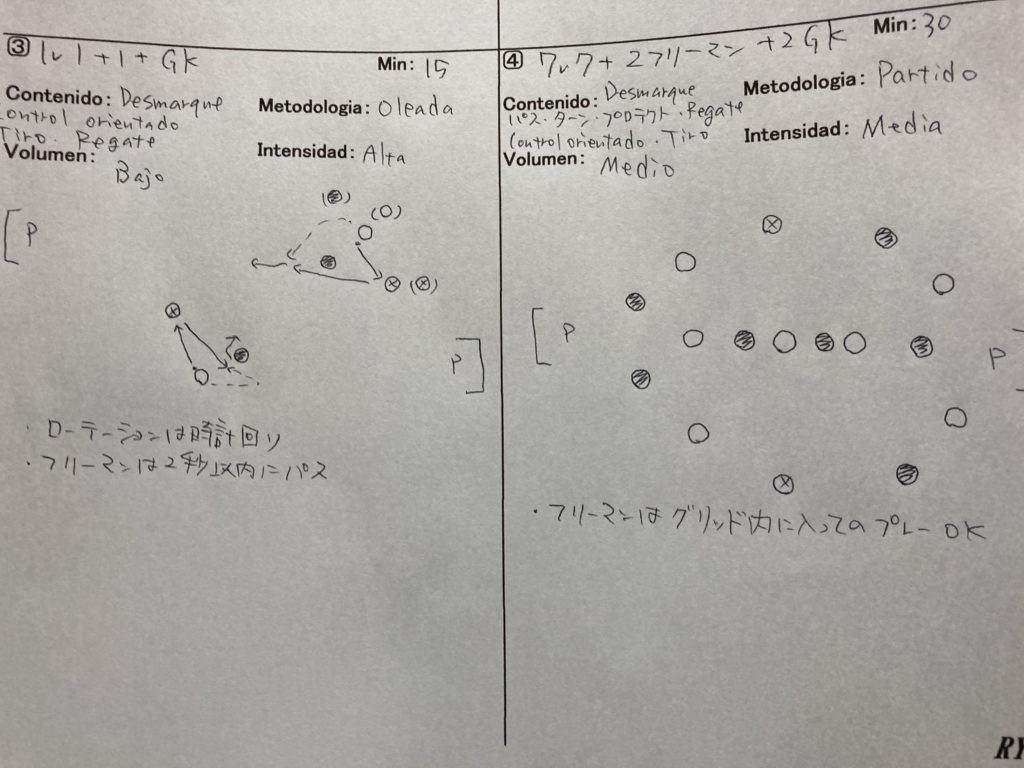 ③ 1v1+1+GK
Min: 15
Contenido: Desmarque
Control orientado
Tiro. Regate
Metodologia: Oleada
Volumen:
Bajo
Intensidad: Alta
P
P
・ローテーションは時計回り
・フリーマンは2秒以内にパス
④ 7v7+2フリーマン+2GK
Min: 30
Contenido: Desmarque
パス・ターン・プロテクト・Regate
Control orientado・Tiro
Metodologia: Partido
Volumen:
Medio
Intensidad: Media
P
P
・フリーマンはグリッド内に入ってのプレーOK
RY